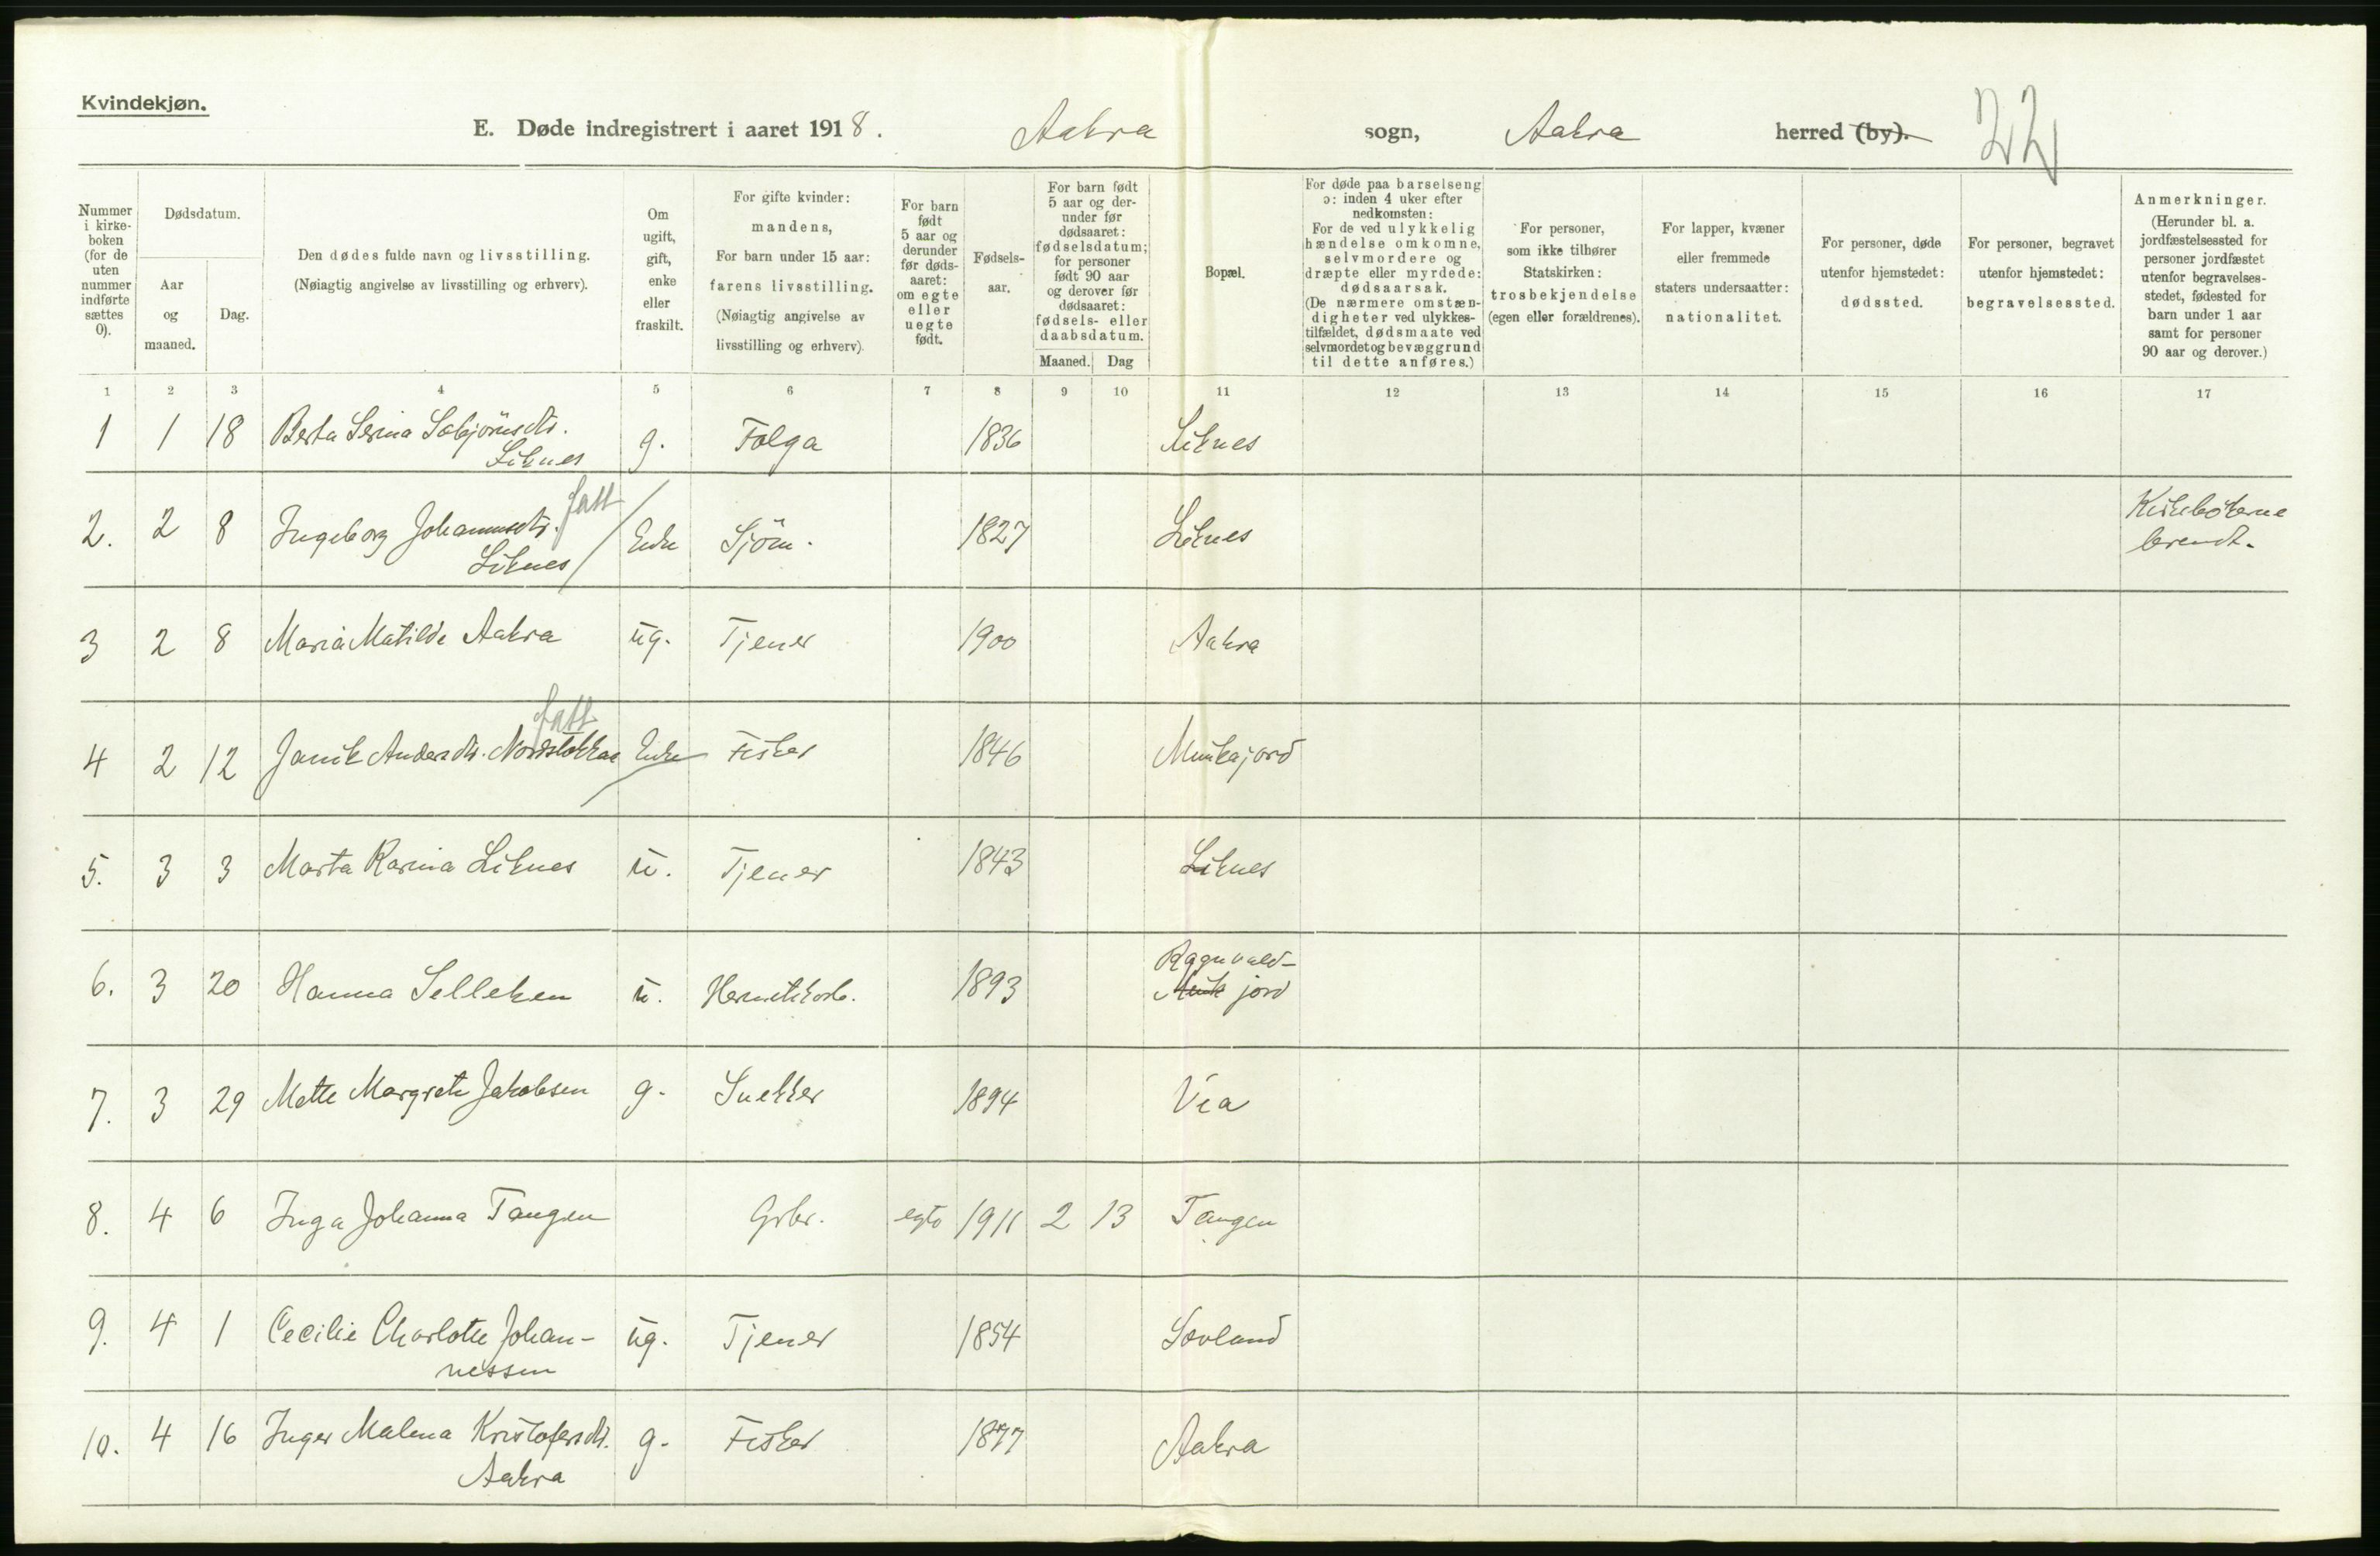 Kvindekjøn.
E. Døde indregistrert i aaret 1918. Aakra sogn, Aakra herred (by). 22
Nummer i kirkeboken (for de uten nummer indførte sættes 0).
Dødsdatum.
Aar og maaned.
Dag.
Den dødes fulde navn og livsstilling.
(Nøiagtig angivelse av livsstilling og erhverv).
Om ugift, gift, enke eller fraskilt.
For gifte kvinder: mandens, For barn under 15 aar: farens livsstilling. (Nøiagtig angivelse av livsstilling og erhverv).
For barn født 5 aar og derunder før dødsaaret: om egte eller uegte født.
Fødselsaar.
For barn født 5 aar og derunder før dødsaaret: fødselsdatum; for personer født 90 aar og derover før dødsaaret: fødsels- eller daabsdatum.
Maaned. Dag
Bopæl.
For døde paa barselseng ɔ: inden 4 uker efter nedkomsten: For de ved ulykkelig hændelse omkomne, selvmordere og dræpte eller myrdede: dødsaarsak. (De nærmere omstændigheter ved ulykkestilfældet, dødsmaate ved selvmordet og bevæggrund til dette anføres.)
For personer, som ikke tilhører Statskirken: trosbekjendelse (egen eller forældrenes).
For lapper, kvæner eller fremmede staters undersaatter: nationalitet.
For personer, døde utenfor hjemstedet: dødssted.
For personer, begravet utenfor hjemstedet: begravelsessted.
Anmerkninger. (Herunder bl. a. jordfæstelsessted for personer jordfæstet utenfor begravelsesstedet, fødested for barn under 1 aar samt for personer 90 aar og derover.)
1 2 3 4 5 6 7 8 9 10 11 12 13 14 15 16 17
1 1 18 Berta Serina Sæbjörnsdtr. g. Folga 1836 Liknes
Liknes
fatt
2. 2 8 Ingeborg Johannesdtr. Enke Sjöm. 1827 Liknes Kirkebökerne
Liknes brendt.
3 2 8 Maria Matilde Aakra ug. Tjener 1900 Aakra
fatt
4 2 12 Janik Andersdtr. Nordstokke Enke Fisker 1846 Munkajord
5. 3 3 Marta Karina Liknes u. Tjener 1843 Liknes
Ragnvald-
6. 3 20 Hanna Selleken u. Hermetikarb. 1893 Munk jord
7. 3 29 Mette Margrete Jakobsen g. Snekker 1894 Vea
8. 4 6 Inga Johanna Tangen Grbr. egte 1911 2 13 Tangen
9. 4 1 Cecilie Charlotte Johan- ug. Tjener 1854 Sævland
nessen
10. 4 16 Inger Malena Kristofersdtr. g. Fisker 1877 Aakra
Aakra